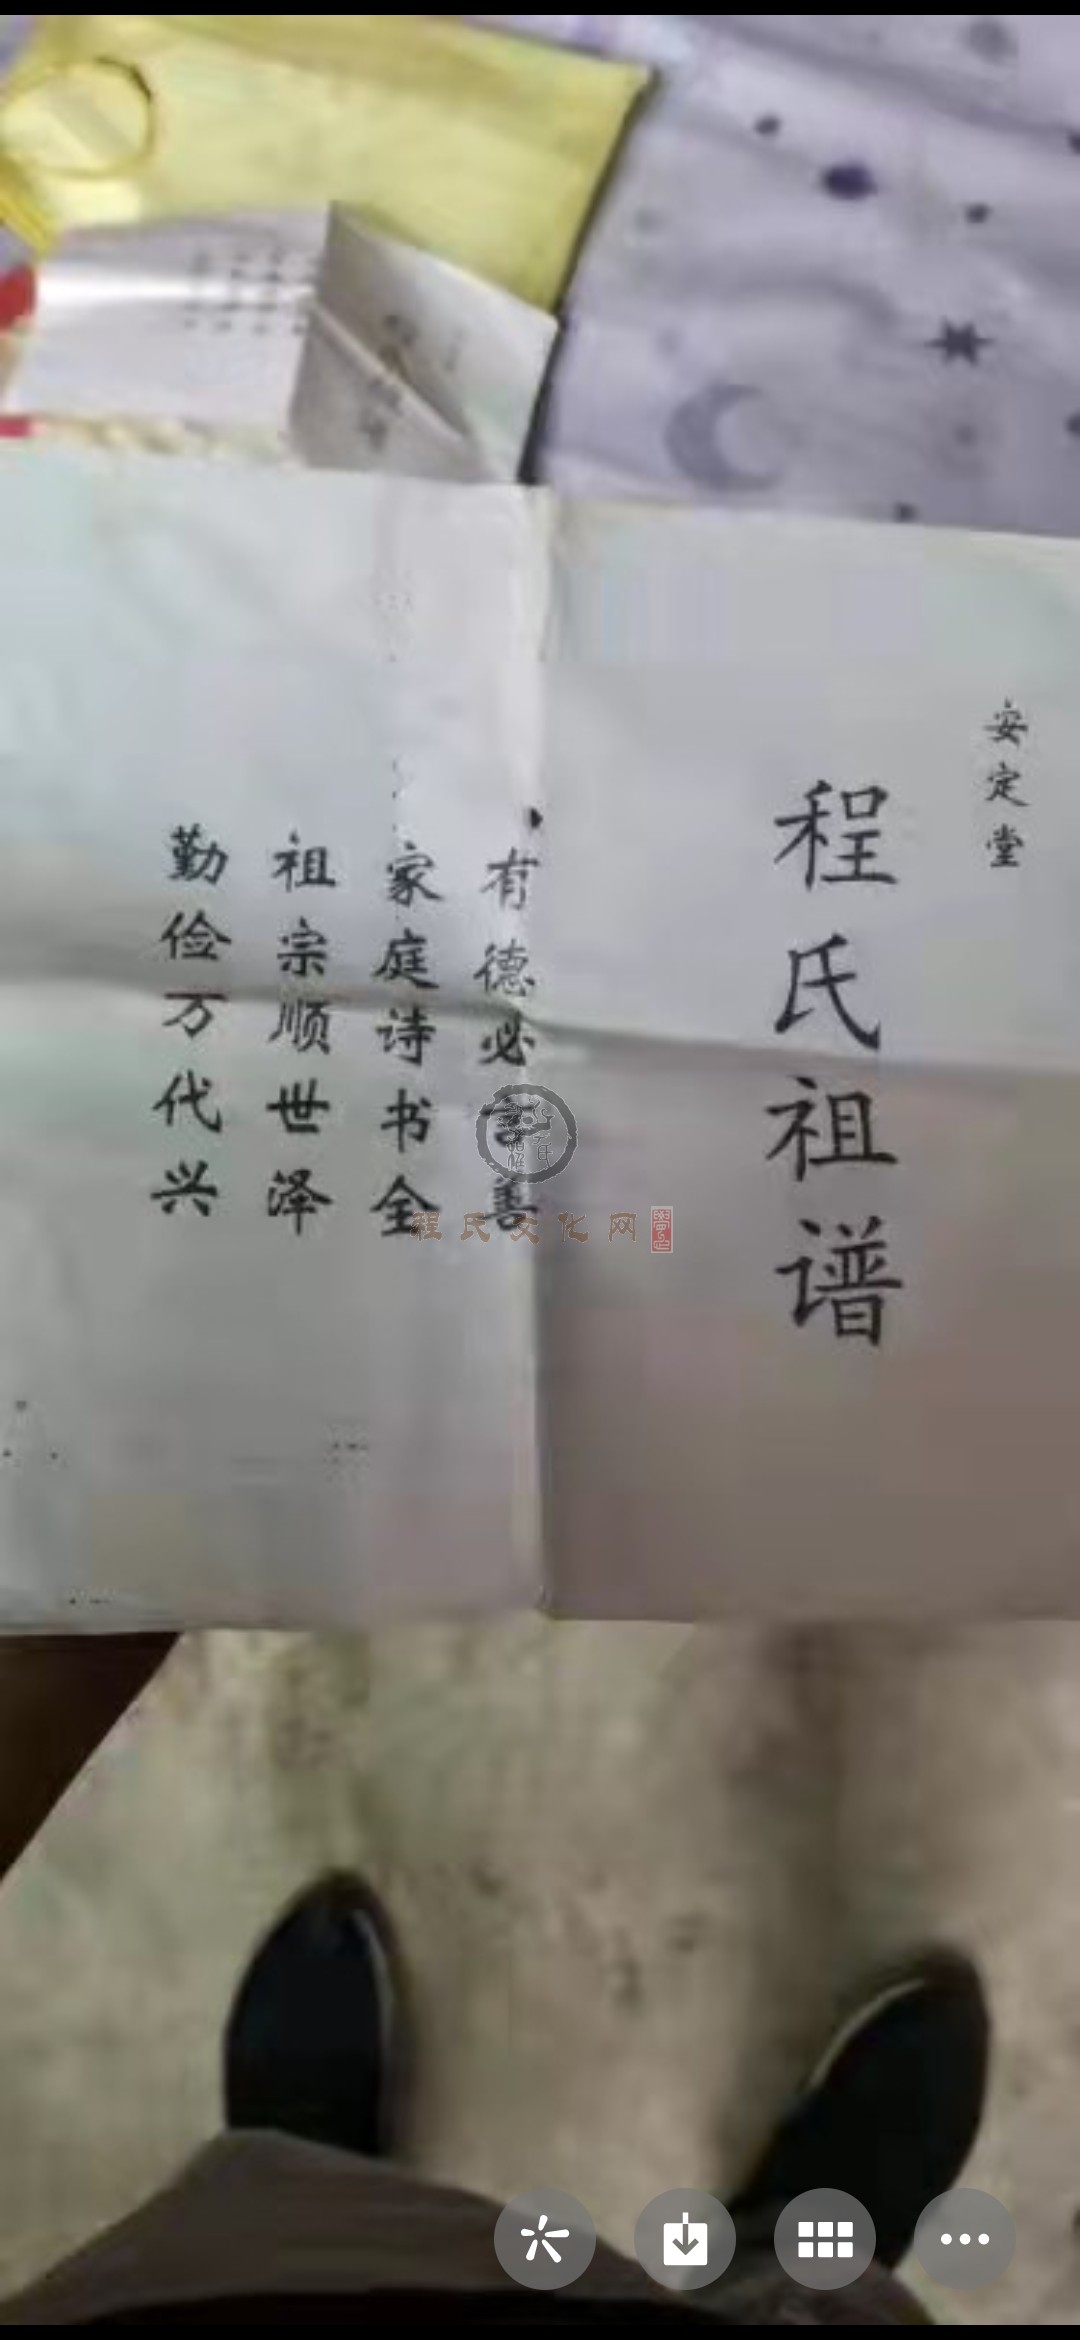 安定堂
程氏祖谱
有德必善
家庭诗书全
祖宗顺世泽
勤俭万代兴
程氏文化网